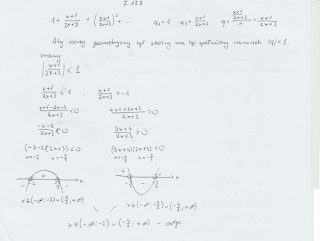 Z 123
1 + \frac{x+1}{2x+3} + \left(\frac{x+1}{2x+3}\right)^2 + ... a_1 = 1 a_2 = \frac{x+1}{2x+3} q = \frac{\frac{x+1}{2x+3}}{1} = \frac{x+1}{2x+3}
Aby szereg geometryczny był zbieżny musi być spełniony warunek |q| < 1.
mamy
\left|\frac{x+1}{2x+3}\right| < 1
\frac{x+1}{2x+3} < 1 , \frac{x+1}{2x+3} > -1
\frac{x+1-2x-3}{2x+3} < 0 \frac{x+1+2x+3}{2x+3} > 0
\frac{-x-2}{2x+3} < 0 \frac{3x+4}{2x+3} > 0
(-x-2)(2x+3) < 0 (3x+4)(2x+3) > 0
x=-2 x=-\frac{3}{2} x=-\frac{4}{3} x=-\frac{3}{2}
x∈(-∞;-2)∪(-\frac{3}{2};+∞) x∈(-∞;-\frac{3}{2})∪(-\frac{4}{3};+∞)
x∈(-∞;-2)∪(-\frac{4}{3};+∞) - odp.